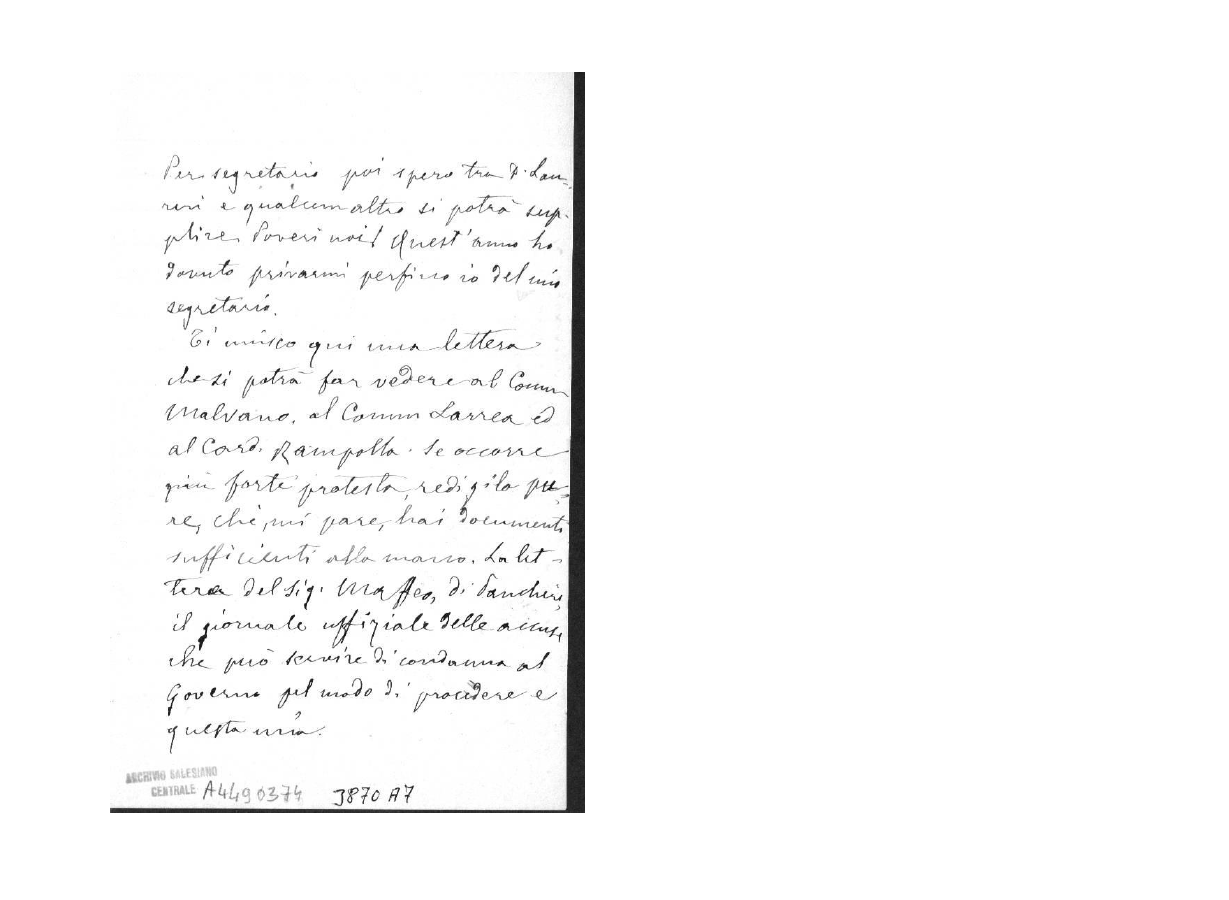 Per segretario poi spero tra D. Lau-
reri e qualcun altro si potrà sup-
plire. Poveri noi! Quest'anno ho
dovuto privarmi perfino io del mio
segretario.
Ti unisco qui una lettera
che si potrà far vedere al Comm
Malvano, al Comm Larrea ed
al Card. Rampolla. Se occorre
più forte protesta, redigila pu-
re, chè, mi pare, hai documenti
sufficienti alla mano. La let-
tera del Sig. Maffeo, di
il giornale uffiziale delle accuse
che può servire di condanna al
Governo pel modo di procedere e
questa mia.
ARCHIVIO SALESIANO
CENTRALE A4490374 3870 A7